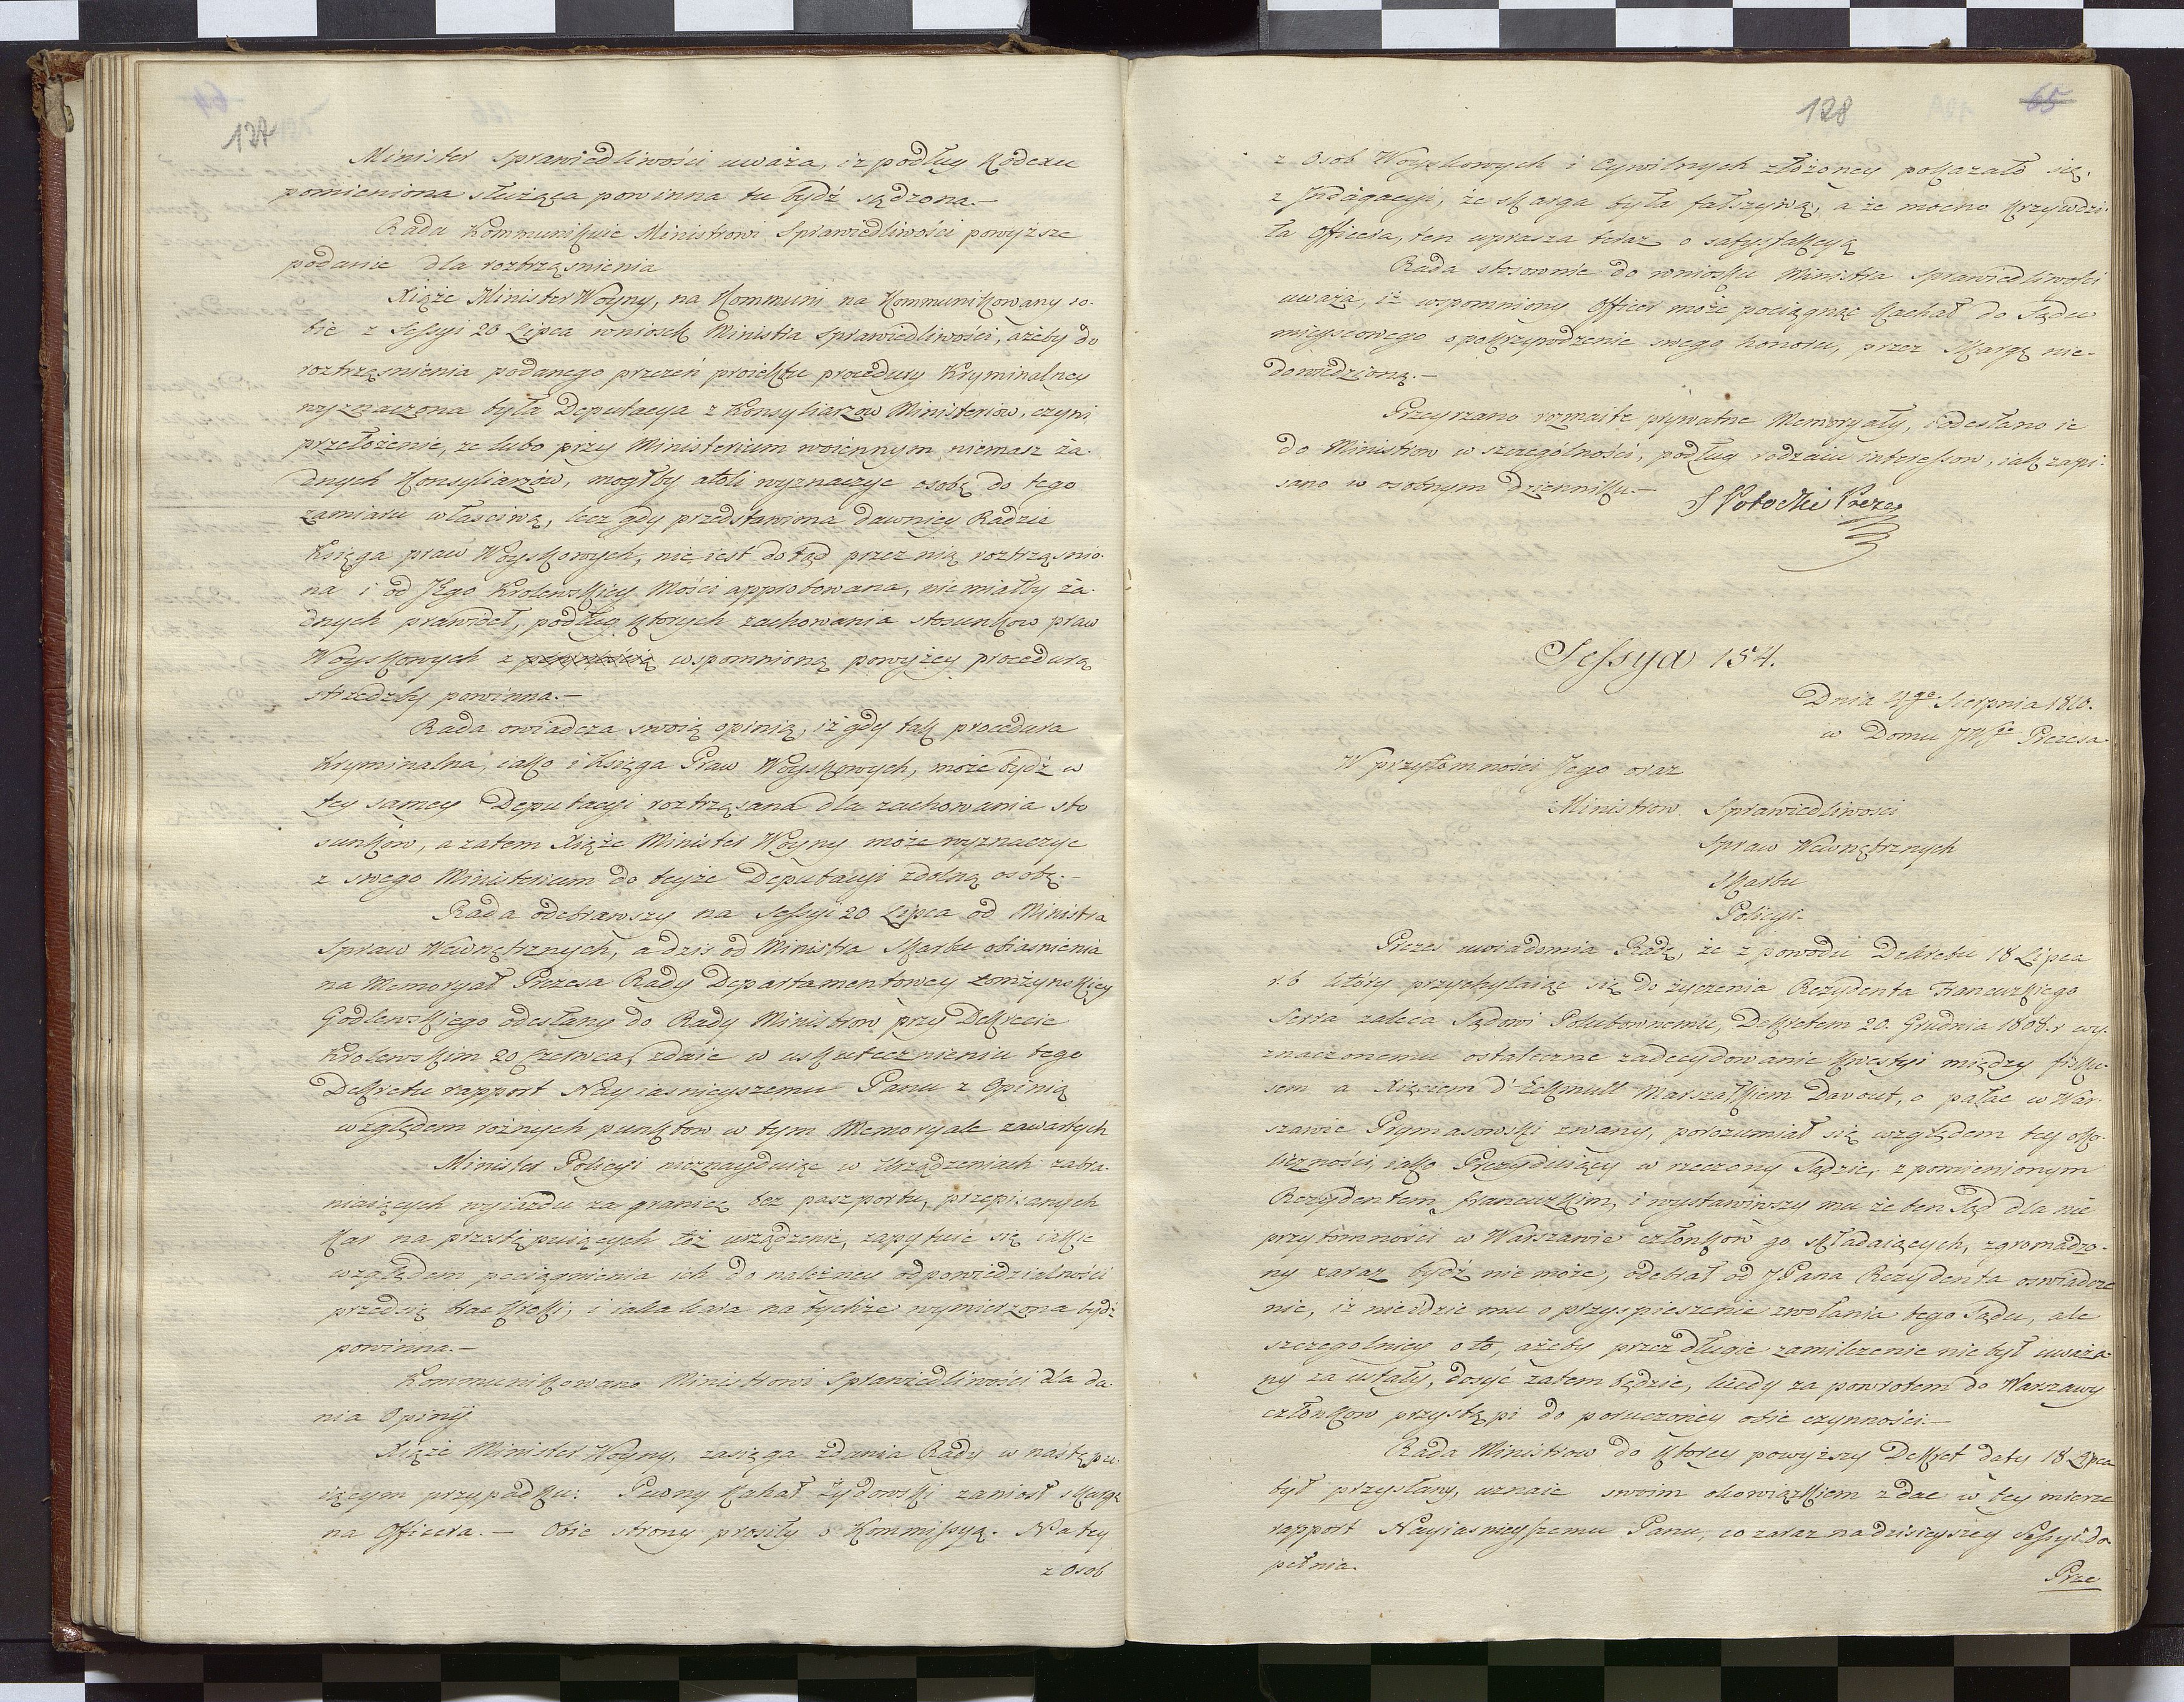 127
Minister sprawiedliwości uważa, iż podług Kodexu
pomieniona służąca powinna tu bydź sądzona.—
Rada Kommunikuie Ministrowi Sprawiedliwości powyższe
podanie dla roztrząsnienia
Xiąże Minister Woyny, na Kommuni na Kommunikowany so-
bie z Sessyi 20 Lipca wniosek Ministra Sprawiedliwości, ażeby do
roztrząsnienia podanego przezeń proiektu procedury Kryminalney
wyznaczona była Deputacya z Konsyliarzow Ministeriow, czyni
przełożenie, że lubo przy Ministerium woiennym niemasz ża-
dnych Konsyliarzów, mogłby atoli wyznaczyc osobę do tego
zamiaru właściwą, lecz gdy przedstawiona dawniey Radzie
Księga praw Woyskowych, nie iest dotąd przez nią roztrząsnio-
na i od JKgo Krolewskiey Mości approbowana, niemiałby ża-
dnych prawideł, podług ktorych zachowania stosunkow praw
Woyskowych z wspomnioną powyżey procedurą
strzedzby powinna.—
Rada oswiadcza swoią opinią, iż gdy tak procedura
Kryminalna, iako i Księga Praw Woyskowych, może bydź w
tey samey Deputacyi roztrząsana dla zachowania sto
sunków, a zatem Xiąże Minister Woyny może wyznaczyc
z swego Ministerium do teyże Deputacyi zdolną osobę.—
Rada odebrawszy na Sessyi 20 Lipca od Ministra
Spraw Wewnętrznych, a dzis od Ministra Skarbu obiasnienia
na Memoryał Prezesa Rady Departamentowey Łomżynskiey
Godlewskiego odesłany do Rady Ministrow przy Dekrecie
Krolewskim 20 Czerwca, zdaie w uskutecznieniu tego
Dekretu rapport Nayiasnieyszemu Panu z Opinią
względem rożnych punktow w tym Memoryale zawartych
Minister Policyi nieznayduiąc w Urządzeniach zabra-
niaiących wyiazdu za granicę bez paszportu, przepisanych
Kar na przestępuiących toż urządzenie, zapytuie się iakie
względem pociągnienia ich do należney odpowiedzialności
przedsię brac Kroki, i iaka kara na tychże wymierzona bydź
powinna.—
Kommunikowano Ministrowi Sprawiedliwości dla da-
nia Opinij
Xiąże Minister Woyny, zasięga zdania Rady w następu-
iącym przypadku: Pewny Kahał Żydowski zaniosł skargę
na Officera.— Obie strony prosiły o Kommissyą. Na tey
z Osob
128
65
z Osob Woyskowych i Cywilnych złożoney pokazało się,
z Jndagacyi, że skarga była fałszywą, a że mocno krzywdzi-
ła Officera, ten uprasza teraz o satysfakcyą
Rada stosownie do wniosku Ministra Sprawiedliwości
uważa, iż wspomniony Officer może pociągnąć Kachał do Sądu
mieyscowego o pokrzywdzenie swego honoru, przez skargę nie-
dowiedzioną.—
Przeyrzano rozmaite prywatne Memoryały, i odesłano ie
do Ministrow w szczególności, podług rodzaiu interessow, iak zapi-
sano w osobnym Dzienniku.—
S Potocki Prezes
Sessya 154.
Dnia 4go Sierpnia 1810.
w Domu JWgo Prezesa
W przytomności Jego oraz
Ministrow Sprawiedliwosci
Spraw Wewnętrznych
Skarbu
Policyi.
Prezes uwiadomia Radę, że z powodu Dekretu 18 Lipca
r. b. który przychylaiąc się do życzenia Rezydenta Francuzkiego
Serra zaleca Sądowi Polubownemu, Dekretem 20. Grudnia 1808. r wy-
znaczonemu ostateczne zadecydowanie kwestyi między fisku-
sem a Xięciem d'Eckmull Marszałkiem Davout, o pałac w War-
szawie Prymasowski zwany, porozumiał się względem tey oko-
liczności, iako Prezyduiący w rzeczony Sądzie, z pomienionym
Rezydentem francuzkim, i wystawiwszy mu że ten Sąd dla nie
przytomności w Warszawie członków go składaiących, zgromadzo-
ny zaraz bydź nie może, odebrał od JPana Rezydenta oswiadcze
nie, iż nieidzie mu o przyspieszenie zwołania tego Sądu, ale
szczegolniey o to, ażeby przez długie zamilczenie nie był uważa-
ny za ustały, dosyć zatem będzie, kiedy za powrotem do Warszawy
członkow przystąpi do poruczoney obie czynności.—
Rada Ministrow do ktorey powyższy Dekret daty 18 Lipca
był przysłany, uznaie swoim obowiązkiem zdac w tey mierze
rapport Nayiasnieyszemu Panu, co zaraz na dzisieyszey Sessyi do-
pełnia.
Prze